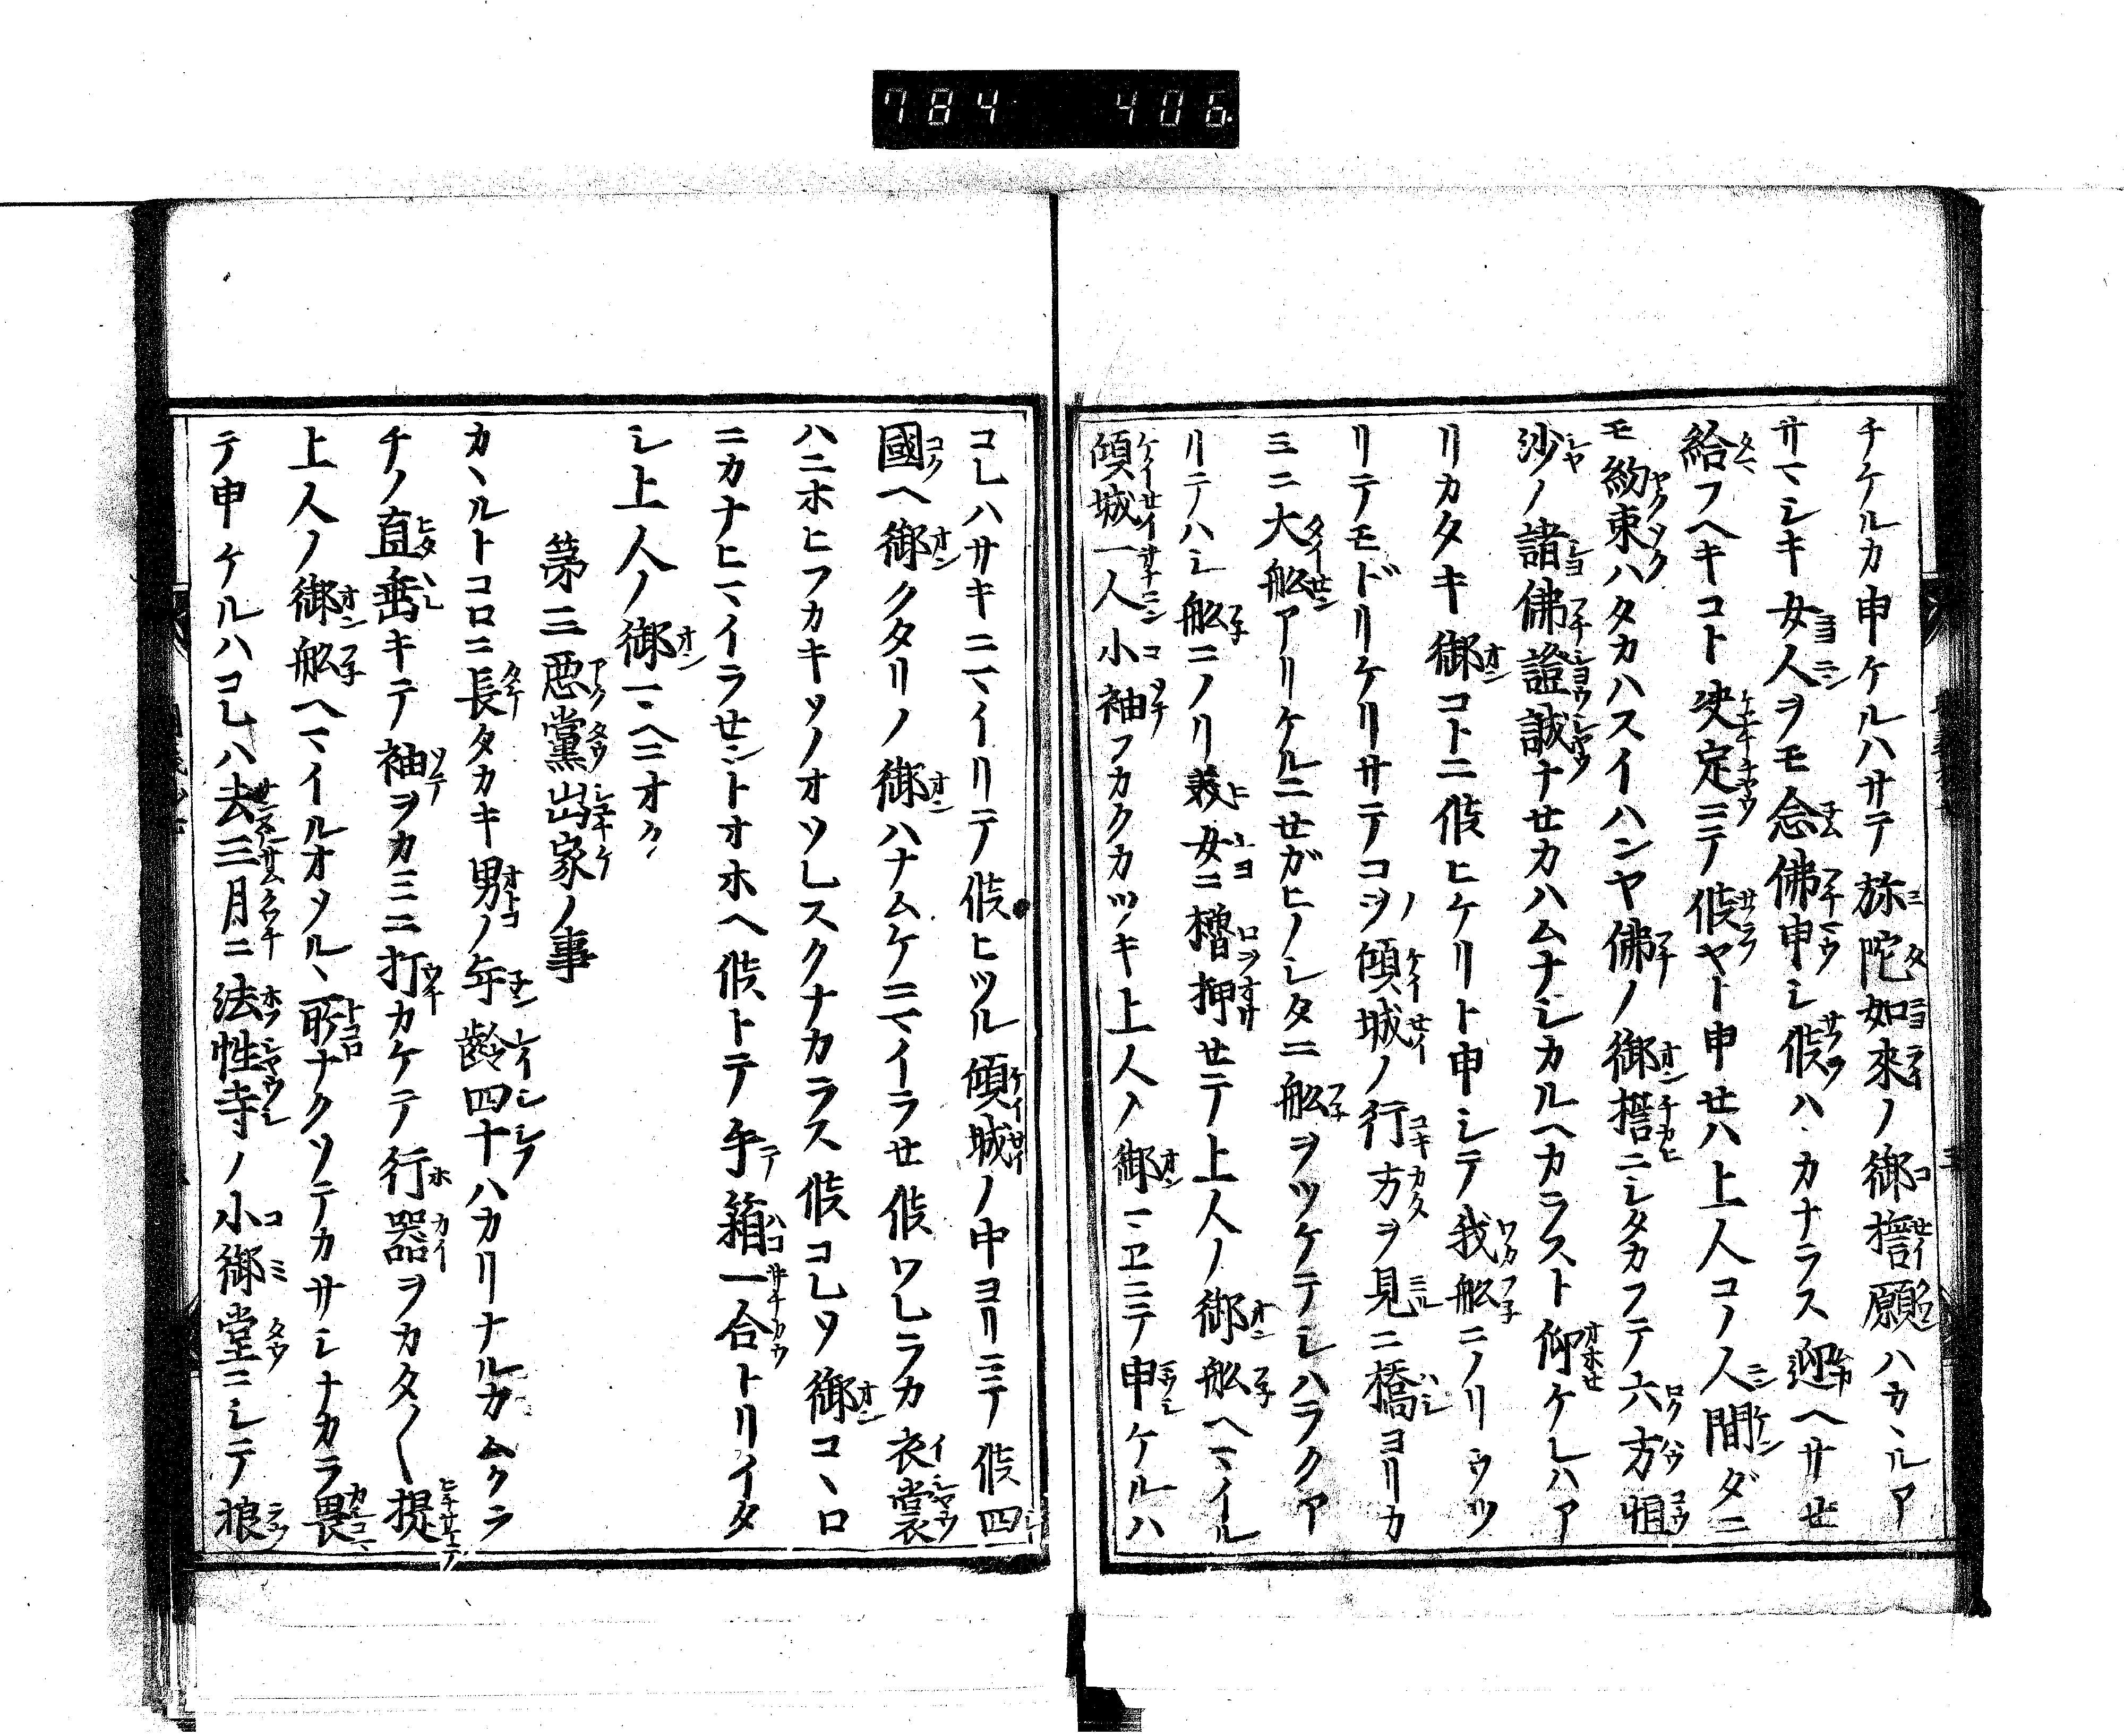 784 406
チケルカ申ケルハサテ弥陀如來ノ御誓願ハカヽルア
サマシキ女人ヲモ念佛申シ候ハヽカナラス迎ヘサせ
給フヘキコト决定ニテ候ヤト申せハ上人コノ人間ダニ
モ約束ハタカハスイハンヤ佛ノ御誓ニシタカフテ六方恒
沙ノ諸佛證誠ナせカハムナシカルヘカラスト仰ケレハア
リカタキ御コトニ候ヒケリト申シテ我舩ニノリウツ
リテモドリケリサテコソノ傾城ノ行方ヲ見ニ橋ヨリカ
ミニ大舩アリケルニせガヒノシタニ舩ヲツケテシハラクア
リテハシ舩ニノリ美女ニ櫓押せテ上人ノ御舩ヘマイル
傾城一人小袖フカクカツキ上人ノ御マヱニテ申ケルハ
コレハサキニマイリテ候ヒツル傾城ノ中ヨリニテ候四
國ヘ御クタリノ御ハナムケニマイラせ候ワレラカ衣裳
ハニホヒフカキツノオソレスクナカラス候コレソ御コヽロ
ニカナヒマイラせントオホヘ候トテ手箱一合トリイタ
シ上人ノ御マヘニオク
第三悪黨出家ノ事
カヽルトコロニ長タカキ男ノ年齡四十ハカリナルカムクラ
チノ直垂キテ袖ヲカミニ打カケテ行器ヲカタ〱提
上人ノ御舩ヘマイルオソルヽ所ナクソテカサシナカラ畏
テ申ケルハコレハ去三月ニ法性寺ノ小御堂ニシテ狼